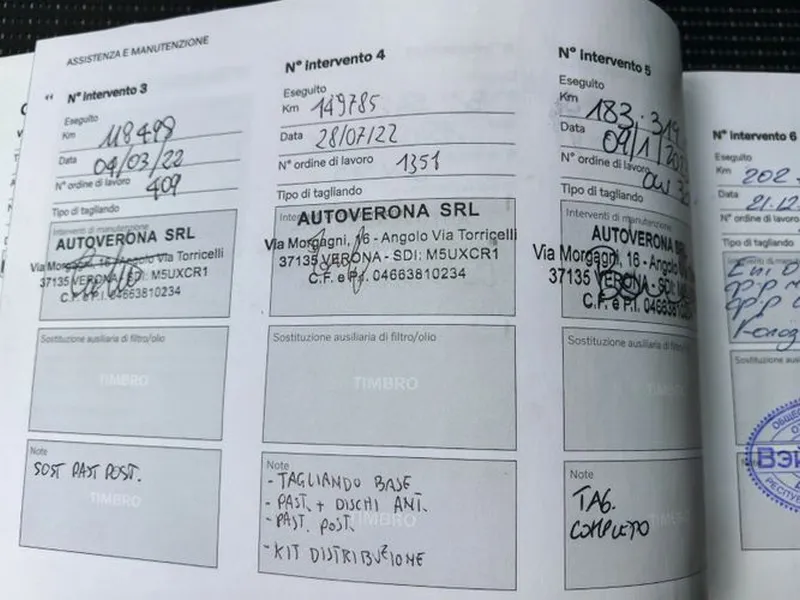 ASSISTENZA E MANUTENZIONE
N° intervento 3
Eseguito
Km 118498
Data 04/03/22
N° ordine di lavoro 409
Tipo di tagliando
Interventi di manutenzione
AUTOVERONA SRL
Via Morgagni, 16 - Angolo Via Torricelli
37135 VERONA - SDI: M5UXCR1
C.F. e P.I. 04663810234
Sostituzione ausiliaria di filtro/olio
TIMBRO
Note
SOST PAST POST.
TIMBRO
N° intervento 4
Eseguito
Km 149785
Data 28/07/22
N° ordine di lavoro 1351
Tipo di tagliando
AUTOVERONA SRL
Via Morgagni, 16 - Angolo Via Torricelli
37135 VERONA - SDI: M5UXCR1
C.F. e P.I. 04663810234
Sostituzione ausiliaria di filtro/olio
TIMBRO
Note
- TAGLIANDO BASE
- PAST. + DISCHI ANT.
- PAST. POST.
TIMBRO
- KIT DISTRIBUZIONE
N° intervento 5
Eseguito
Km 183.319
Data 09/1/
N° ordine di lavoro
Tipo di tagliando
Interventi di manutenzione
AUTOVERONA SRL
Via Morgagni, 16 - Angolo
37135 VERONA - SDI:
C.F. e P.I. 0466381
Sostituzione ausiliaria di filtro
Note
TAG.
COMPLETO
N° intervento 6
Eseguito
Km 202
Data 21.12
N° ordine di lavoro
Tipo di tagliando
Sostituzione